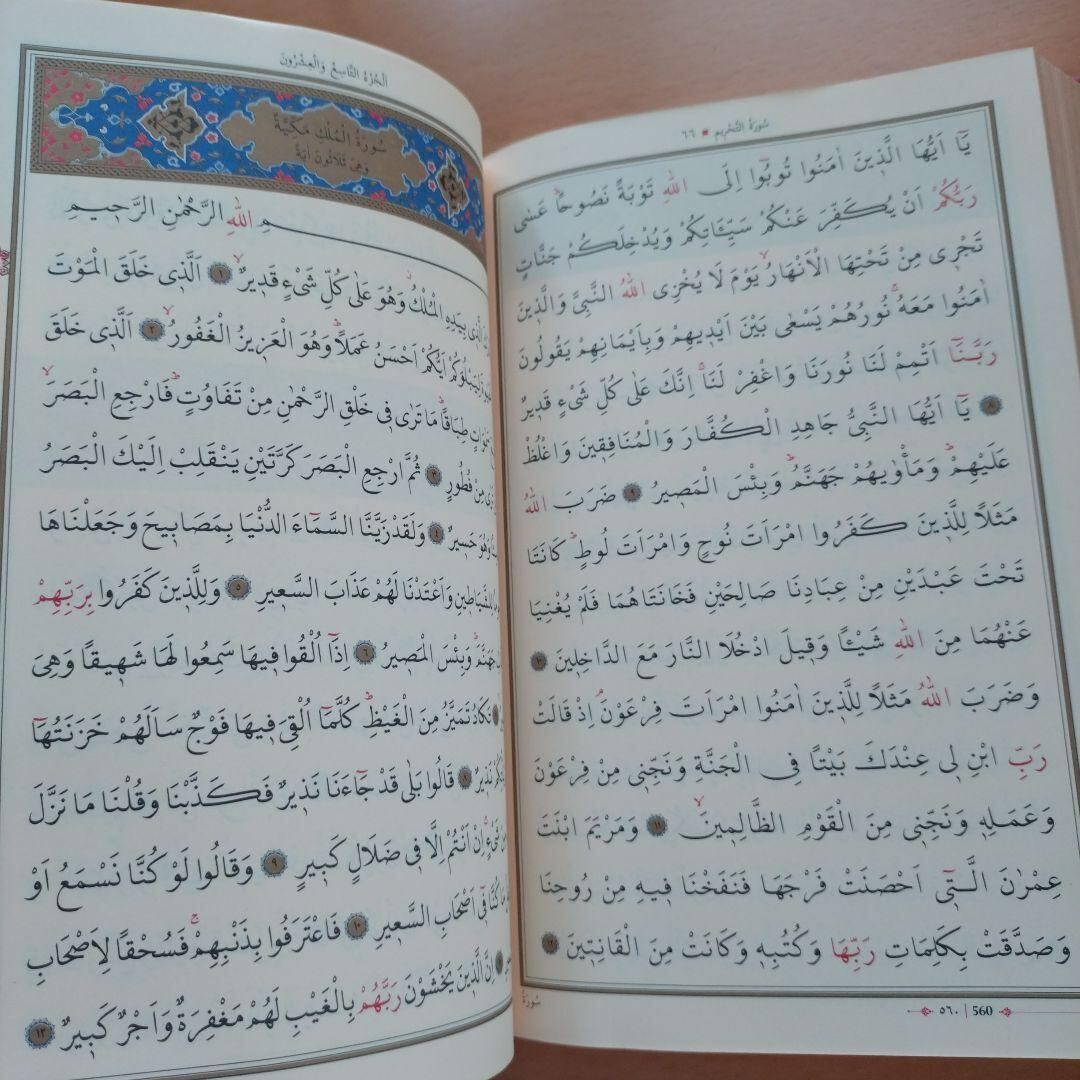 سُورَةُ التَّحْرِيمِ ٦٦
يَٓا اَيُّهَا الَّذ۪ينَ اٰمَنُوا تُوبُٓوا اِلَى اللّٰهِ تَوْبَةً نَصُوحًاۜ عَسٰى
رَبُّكُمْ اَنْ يُكَفِّرَ عَنْكُمْ سَيِّـَٔاتِكُمْ وَيُدْخِلَكُمْ جَنَّاتٍ
تَجْر۪ي مِنْ تَحْتِهَا الْاَنْهَارُۙ يَوْمَ لَا يُخْزِي اللّٰهُ النَّبِيَّ وَالَّذ۪ينَ
اٰمَنُوا مَعَهُۚ نُورُهُمْ يَسْعٰى بَيْنَ اَيْد۪يهِمْ وَبِاَيْمَانِهِمْ يَقُولُونَ
رَبَّنَٓا اَتْمِمْ لَنَا نُورَنَا وَاغْفِرْ لَنَاۚ اِنَّكَ عَلٰى كُلِّ شَيْءٍ قَد۪يرٌ
٨ يَٓا اَيُّهَا النَّبِيُّ جَاهِدِ الْكُفَّارَ وَالْمُنَافِق۪ينَ وَاغْلُظْ
عَلَيْهِمْۜ وَمَأْوٰيهُمْ جَهَنَّمُۜ وَبِئْسَ الْمَص۪يرُ ٩ ضَرَبَ اللّٰهُ
مَثَلًا لِلَّذ۪ينَ كَفَرُوا امْرَاَتَ نُوحٍ وَامْرَاَتَ لُوطٍۜ كَانَتَا
تَحْتَ عَبْدَيْنِ مِنْ عِبَادِنَا صَالِحَيْنِ فَخَانَتَاهُمَا فَلَمْ يُغْنِيَا
عَنْهُمَا مِنَ اللّٰهِ شَيْـًٔا وَق۪يلَ ادْخُلَا النَّارَ مَعَ الدَّاخِل۪ينَ ١٠
وَضَرَبَ اللّٰهُ مَثَلًا لِلَّذ۪ينَ اٰمَنُوا امْرَاَتَ فِرْعَوْنَۢ اِذْ قَالَتْ
رَبِّ ابْنِ ل۪ي عِنْدَكَ بَيْتًا فِي الْجَنَّةِ وَنَجِّن۪ي مِنْ فِرْعَوْنَ
وَعَمَلِه۪ وَنَجِّن۪ي مِنَ الْقَوْمِ الظَّالِم۪ينَۙ ١١ وَمَرْيَمَ ابْنَتَ
عِمْرٰنَ الَّت۪ٓي اَحْصَنَتْ فَرْجَهَا فَنَفَخْنَا ف۪يهِ مِنْ رُوحِنَا
وَصَدَّقَتْ بِكَلِمَاتِ رَبِّهَا وَكُتُبِه۪ وَكَانَتْ مِنَ الْقَانِت۪ينَ ١٢
سُورَةُ
560 | ٥٦٠
اَلْجُزْءُ التَّاسِعُ وَالْعِشْرُونَ
سُورَةُ الْمُلْكِ مَكِّيَّةٌ
وَهِيَ ثَلَاثُونَ اٰيَةً
اللّٰهِ الرَّحْمٰنِ الرَّح۪يمِ
بِيَدِهِ الْمُلْكُۘ وَهُوَ عَلٰى كُلِّ شَيْءٍ قَد۪يرٌۙ ١ اَلَّذ۪ي خَلَقَ الْمَوْتَ
لِيَبْلُوَكُمْ اَيُّكُمْ اَحْسَنُ عَمَلًاۜ وَهُوَ الْعَز۪يزُ الْغَفُورُۙ ٢ اَلَّذ۪ي خَلَقَ
طِبَاقًاۜ مَا تَرٰى ف۪ي خَلْقِ الرَّحْمٰنِ مِنْ تَفَاوُتٍۜ فَارْجِعِ الْبَصَرَۙ
مِنْ فُطُورٍ ٣ ثُمَّ ارْجِعِ الْبَصَرَ كَرَّتَيْنِ يَنْقَلِبْ اِلَيْكَ الْبَصَرُ
وَهُوَ حَس۪يرٌ ٤ وَلَقَدْ زَيَّنَّا السَّمَٓاءَ الدُّنْيَا بِمَصَاب۪يحَ وَجَعَلْنَاهَا
لِلشَّيَاط۪ينِ وَاَعْتَدْنَا لَهُمْ عَذَابَ السَّع۪يرِ ٥ وَلِلَّذ۪ينَ كَفَرُوا بِرَبِّهِمْ
جَهَنَّمَۜ وَبِئْسَ الْمَص۪يرُ ٦ اِذَٓا اُلْقُوا ف۪يهَا سَمِعُوا لَهَا شَه۪يقًا وَهِيَ
تَكَادُ تَمَيَّزُ مِنَ الْغَيْظِۜ كُلَّمَٓا اُلْقِيَ ف۪يهَا فَوْجٌ سَاَلَهُمْ خَزَنَتُهَٓا
نَذ۪يرٌ ٨ قَالُوا بَلٰى قَدْ جَٓاءَنَا نَذ۪يرٌ فَكَذَّبْنَا وَقُلْنَا مَا نَزَّلَ
شَيْءٍۚ اِنْ اَنْتُمْ اِلَّا ف۪ي ضَلَالٍ كَب۪يرٍ ٩ وَقَالُوا لَوْ كُنَّا نَسْمَعُ اَوْ
مَا كُنَّا ف۪ٓي اَصْحَابِ السَّع۪يرِ ١٠ فَاعْتَرَفُوا بِذَنْبِهِمْۚ فَسُحْقًا لِاَصْحَابِ
اِنَّ الَّذ۪ينَ يَخْشَوْنَ رَبَّهُمْ بِالْغَيْبِ لَهُمْ مَغْفِرَةٌ وَاَجْرٌ كَب۪يرٌ ١٢